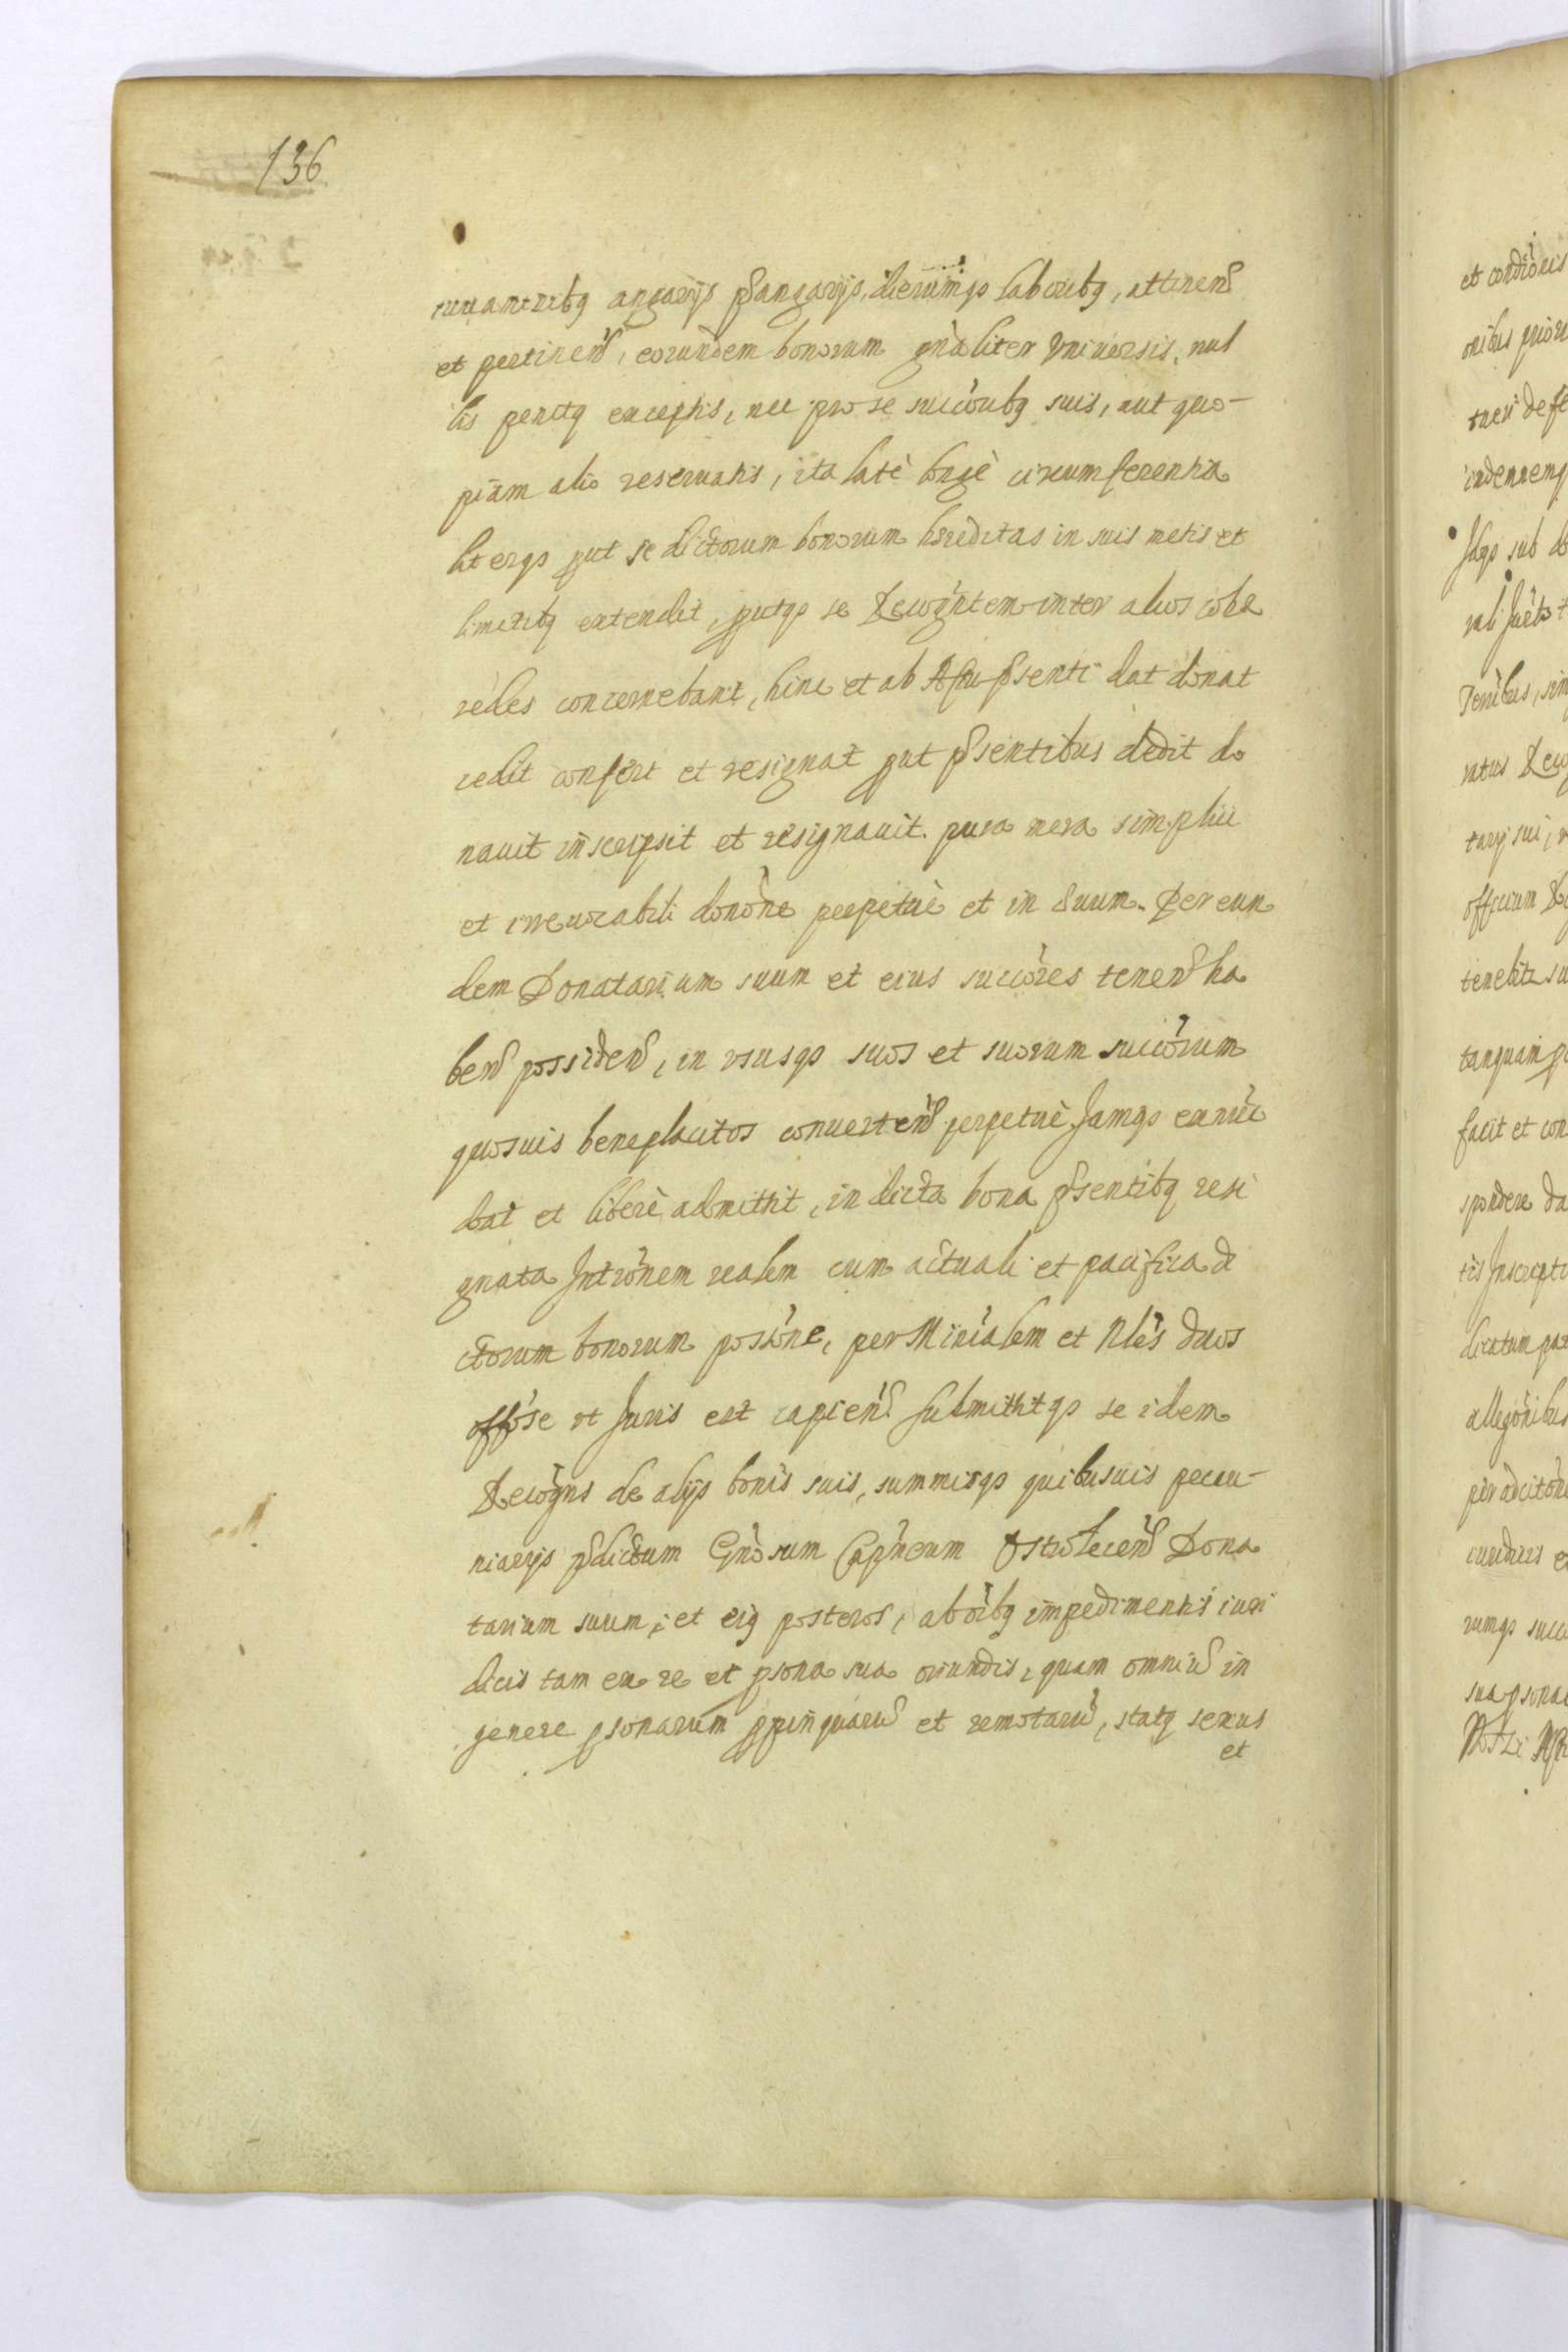 136
angarijs pangarijs, dierumqȝ laboribq, attinen
et pertinen, eorundem bonorum gnaliter Vniuersis, nul
lis penitq exceptis, nec pro se succoribq suis, aut quo-
piam alio reseruatis, ita late longe circumferentia
literqȝ put se dictorum bonorum hæreditas in suis metis et
limitibq extendit, putqȝ se Recogntem inter alios cohæ
redes concernebant, hinc et ab Actu psenti dat donat
cedit confert et resignat put psentibus dedit do
nauit inscripsit et resignauit. pura mera simplici
et irreuocabili donone perpetuè et in æuum. Per eun
dem Donatarium suum et eius succores tenen ha
ben possiden, in vsusqȝ suos et suorum succorum
quosuis beneplacitos conuerten perpetuè. Jamqȝ exnūc
dat et liberè admittit, in dicta bona psentibq resi
gnata Intronem realem cum actuali et pacifica di
ctorum bonorum possone, per Minialem et Nles duos
offose vt Juris est capien. Submittitqȝ se idem
Recogns de alijs bonis suis, summisqȝ quibusuis pecu-
niarijs pdictum Gnosum Capneum Donа
tarium suum, et eiq posteros, ab oibq impedimentis iuri
dicis tam ex re et psona sua oriundis, quam omniu in
genere psonarum ppinquaru et remotaru, statq sexus
et
et condionis
onibus prior
indemnemq
Idqȝ sub
Recog
tarij sui,
officium
tenebit su
tanquam
facit et con
spondere da
tis Inscripti
allegonibus
rumqȝ succ
sua psona